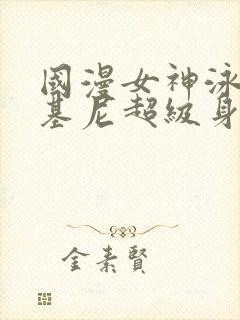 國漫女神泳
基尼超級身
金素賢